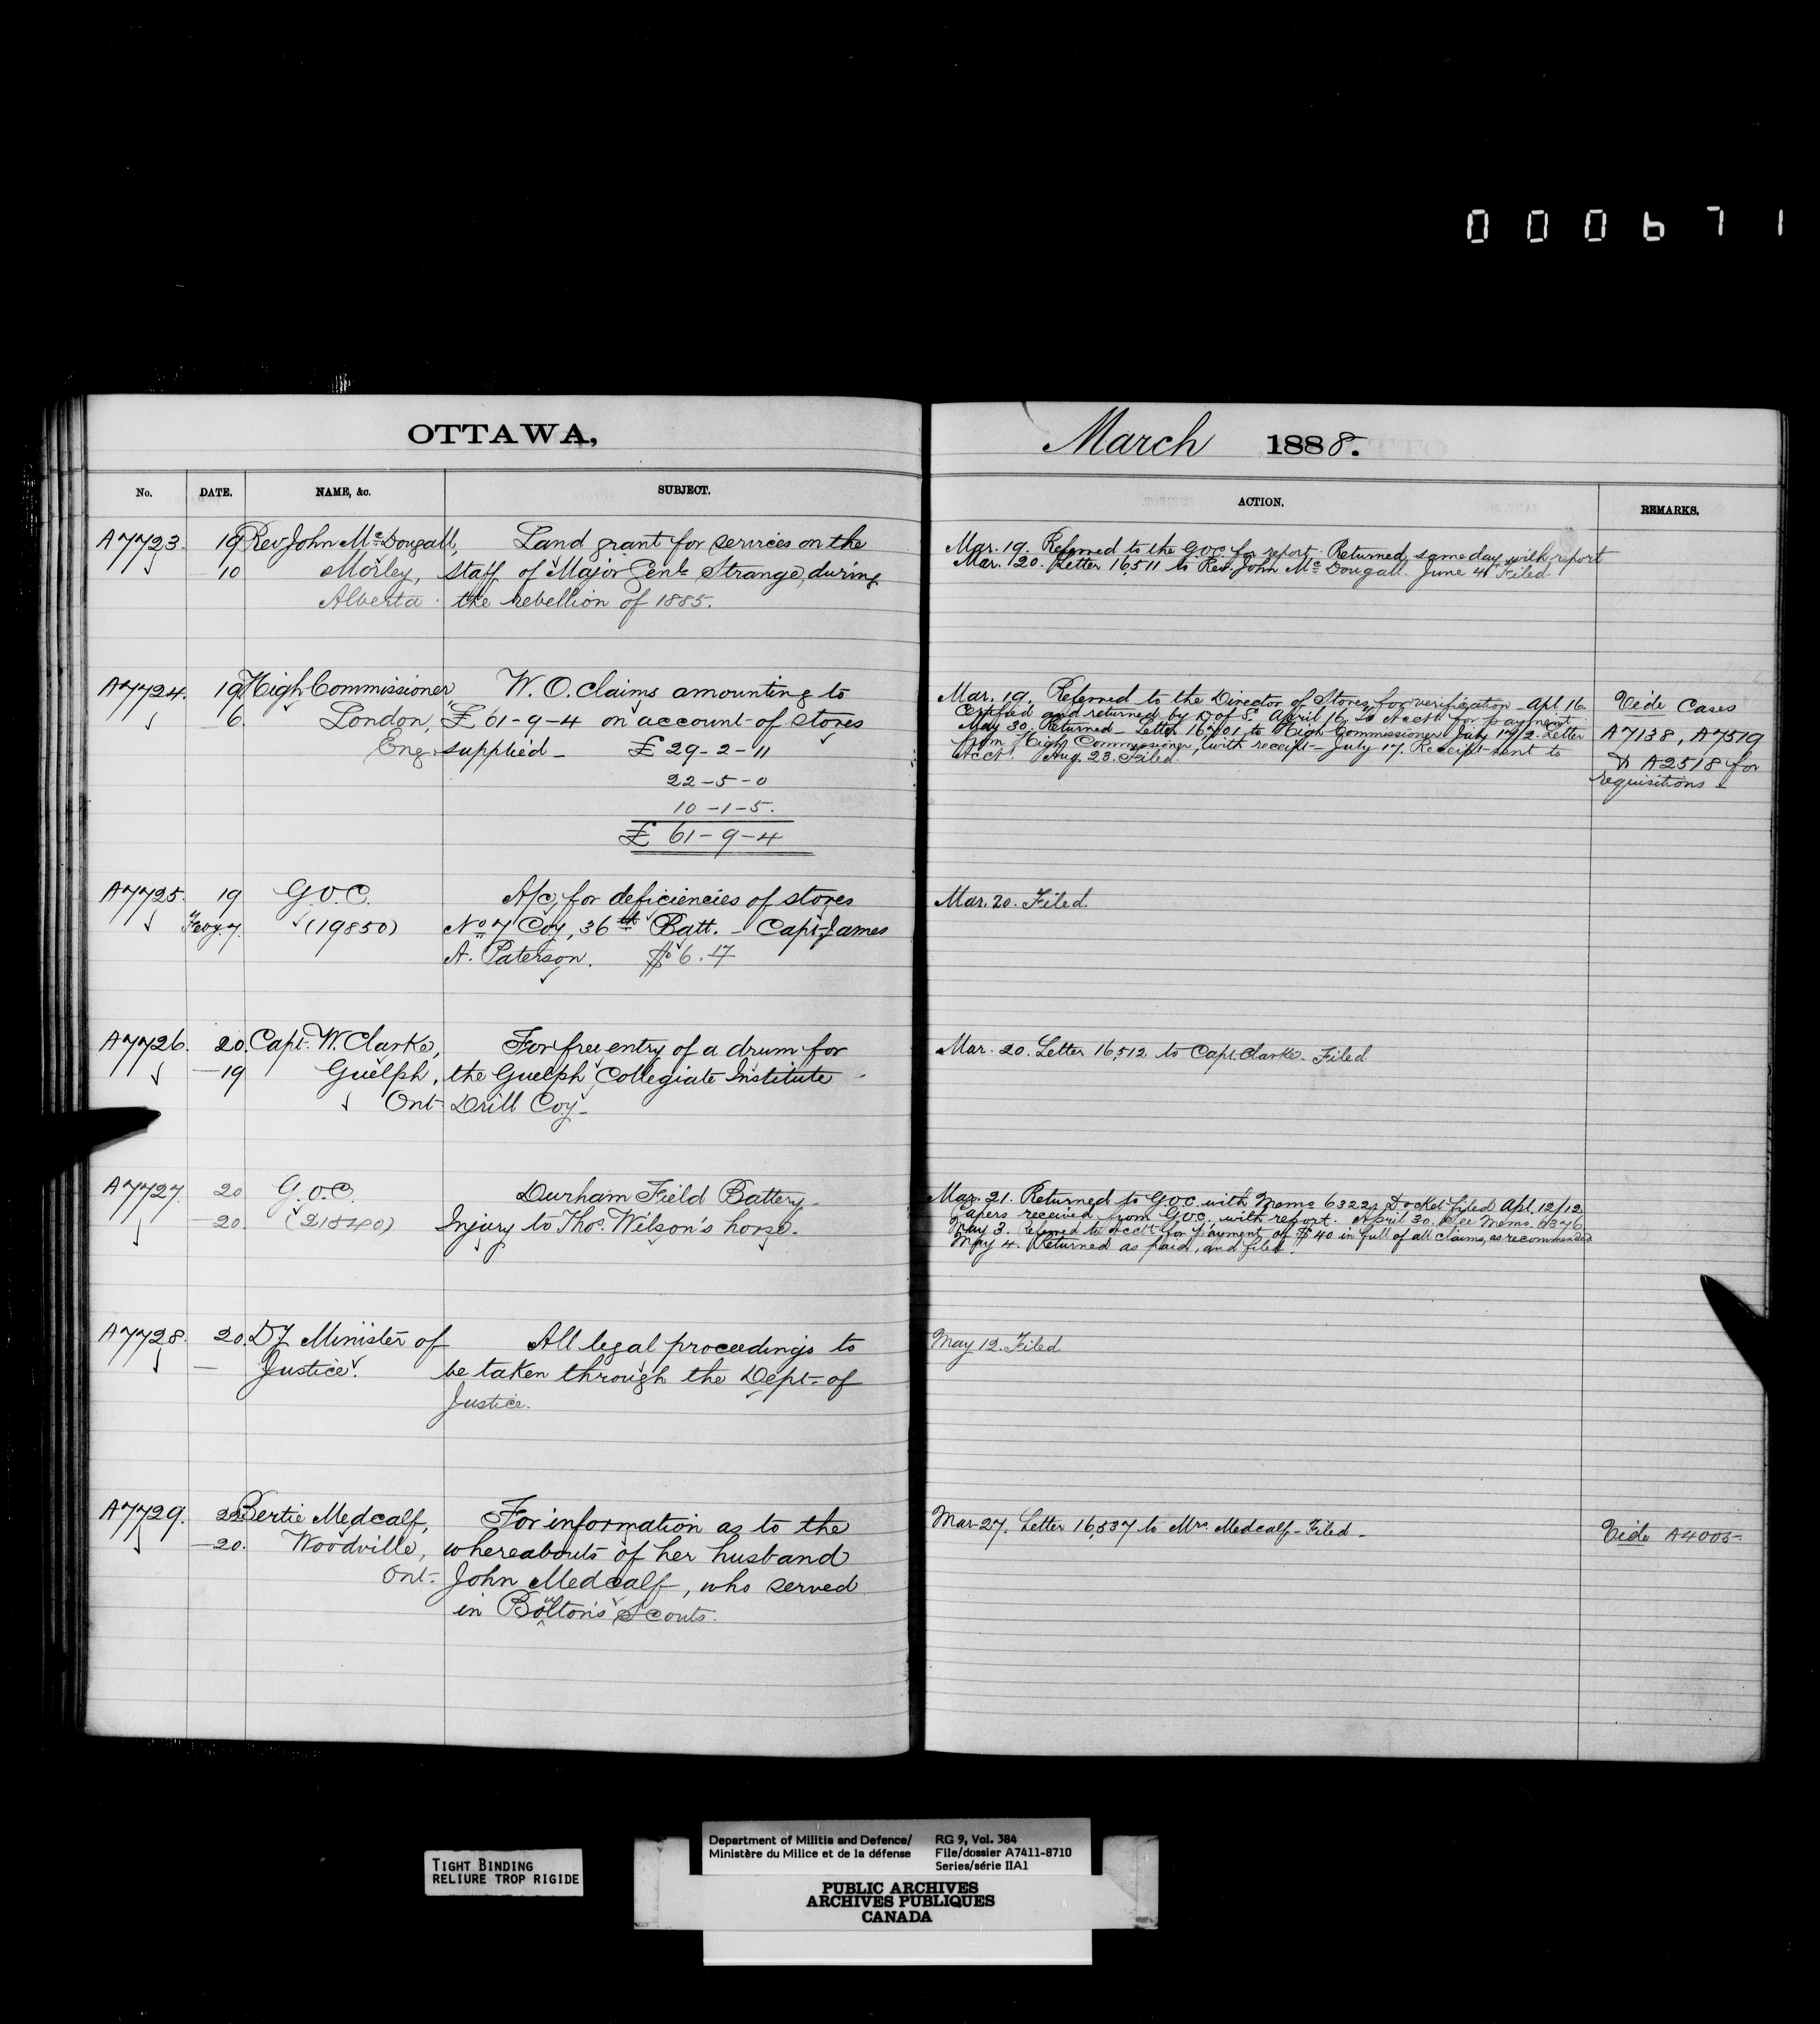 000671
OTTAWA,
No. DATE. NAME, &c. SUBJECT.
A7723. 19 Rev John McDougall, Land grant for services on the
10 Morley, staff of Major Genl. Strange, during
Alberta. the rebellion of 1885.
A7724. 19 High Commissioner W. O. claims amounting to
6. London, £61-9-4 on account of stores
Eng. supplied - £29-2-11
22-5-0
10-1-5.
£ 61-9-4
A7725. 19 G.O.C. A/c, for deficiencies of stores
Feby. 7. (19850) No 7 Coy, 36th Batt. - Capt. James
A. Paterson. $6.17
A7726. 20. Capt. W. Clarke, For free entry of a drum for
-19 Guelph, the Guelph Collegiate Institute
Ont. Drill Coy-
A7727. 20 G.O.C. Durham Field Battery-
-20. (21540) Injury to Thos. Wilson's horse.
A7728. 20. Dy Minister of All legal proceedings to
- Justice. be taken through the Dept. of
Justice.
A7729. 22 Bertie Medcalf, For information as to the
-20. Woodville, whereabouts of her husband
Ont- John Medcalf, who served
in Boulton's Scouts.
March 1888.
ACTION. REMARKS.
Mar. 19. Referred to the G.O.C. for report. Returned same day with report
Mar. 20. Letter 16,511 to Rev. John McDougall. June 4 Filed.
Mar. 19. Referred to the Director of Stores, for verification - Apl 16. Vide Cases
Certified and returned by D of S. April 16. To Acctt for payment
May 30. Returned - Letter 16,701 to High Commissioner July 17/2. Letter A7138, A7519
from High Commissioner, with receipt - July 17. Receipt sent to
Acctt. Aug. 23. Filed. & A2518 for
requisitions -
Mar. 20. Filed.
Mar. 20. Letter 16,512 to Capt. Clarke - Filed
Mar. 21. Returned to G.O.C. with Memo 6322, Docket filed Apl. 12/12
Papers received from G.O.C., with report. April 30. See Memo. 6376
May 3. Referred to Acctt for payment of $40 in full of all claims, as recommended
May 4. Returned as paid, and filed.
May 12. Filed
Mar 27. Letter 16,537 to Mrs Medcalf - Filed - Vide A4005-
TIGHT BINDING
RELIURE TROP RIGIDE
Department of Militia and Defence/
Ministère du Milice et de la défense
RG 9, Vol. 384
File/dossier A7411-8710
Series/série IIA1
PUBLIC ARCHIVES
ARCHIVES PUBLIQUES
CANADA